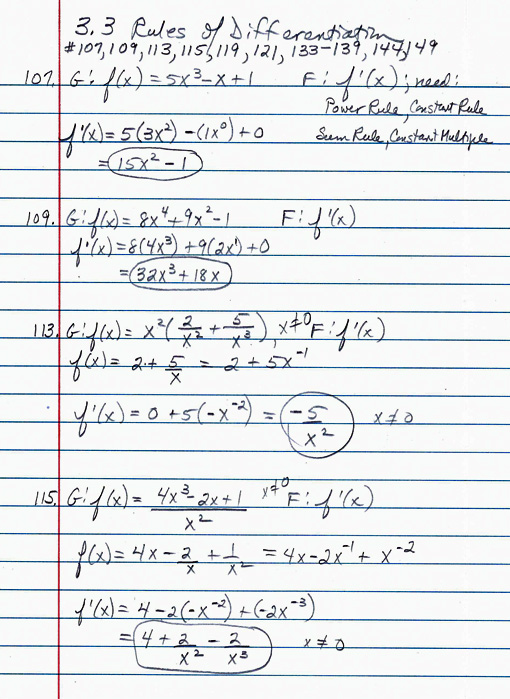 3.3 Rules of Differentiation
#107, 109, 113, 115, 119, 121, 133-139, 144, 149
107. G: f(x) = 5x³ - x + 1 F: f'(x); need:
Power Rule, Constant Rule
f'(x) = 5(3x²) - (1x⁰) + 0 Sum Rule, Constant Multiple
= 15x² - 1
109. G: f(x) = 8x⁴ + 9x² - 1 F: f'(x)
f'(x) = 8(4x³) + 9(2x¹) + 0
= 32x³ + 18x
113. G: f(x) = x²(2/x² + 5/x³), x≠0 F: f'(x)
f(x) = 2 + 5/x = 2 + 5x⁻¹
f'(x) = 0 + 5(-x⁻²) = -5/x² x≠0
115. G: f(x) = (4x³ - 2x + 1)/x² x≠0 F: f'(x)
f(x) = 4x - 2/x + 1/x² = 4x - 2x⁻¹ + x⁻²
f'(x) = 4 - 2(-x⁻²) + (-2x⁻³)
= 4 + 2/x² - 2/x³ x≠0